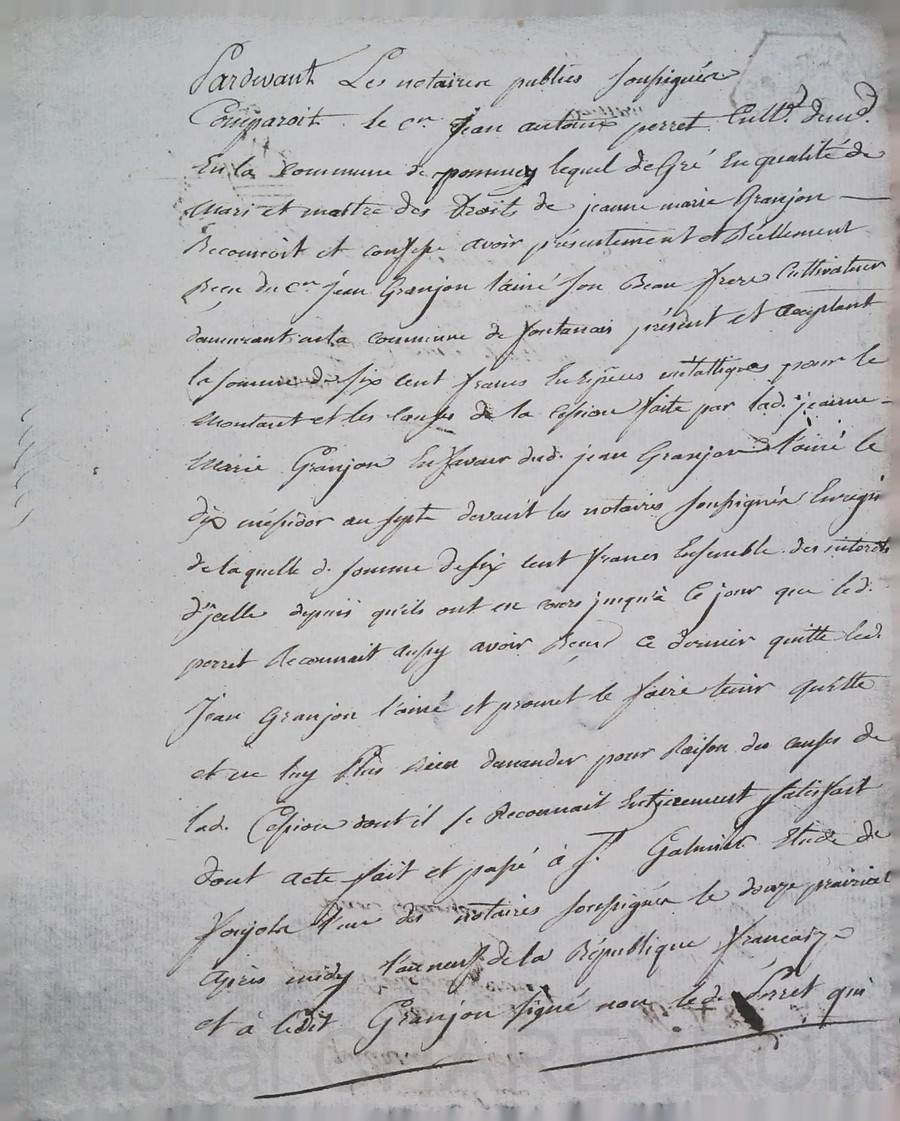 Pardevant Les notaires publics soussignés
Comparoit le cen Jean antoine perret Cultr. demt.
En la Commune de pommey lequel de Gré En qualité de
Mari et maître des Droits de jeanne marie Granjon —
Reconnoit et confesse avoir présentement et Réellement
Receu du cen jean Granjon l'ainé son Beau frere Cultivateur
demeurant en la commune de fontanais présent et acceptant
la somme de six cent francs En espèces métalliques pour le
Montant et les causes de la Cession faite par lad. jeanne -
Marie Granjon En faveur dud. jean Granjon l'ainé le
dix messidor an sept devant les notaires soussignés Enregré
de laquelle d. somme de six cent francs Ensemble des interets
d'jcelle depuis qu'ils ont eu cours jusqu'à ce jour que led.
perret Reconnait aussy avoir Receus ce dernier quitte led.
Jean Granjon l'ainé et promet le faire tenir quitte
et ne luy Plus Rien demander pour Raison des causes de
lad. Cession dont il se Reconnait Entierement satisfait
dont acte fait et passé à St. Galmier Etude de
Ponjola l'un des notaires soussignés le douze prairial
après midy l'an neuf de la République française
et à ledit Granjon signé non led. Perret qui
Pascal CHAREYRON